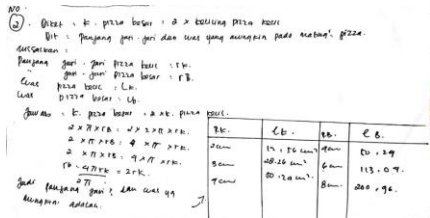 NO.
② Diket : K. pizza besar = 2 x keliling pizza kecil
Dit : Panjang jari-jari dan luas yang mungkin pada pizza.
Misalkan :
panjang jari-jari pizza kecil : rK.
" jari-jari pizza besar : rB.
Luas pizza kecil : LK.
Luas pizza besar : Lb.
Jawab : K. pizza besar = 2 x K. pizza kecil.
2 x π x rB = 2 x 2 x π x rK.
2 x π x rB = 4 x π x rK.
2 x π x rB = 4 x π x rK.
4πrK = 2rK.
2π
Jadi panjang jari² dan luas yg
mungkin adalah.
RK. LK. RB. LB.
2cm 12,56 cm² 4cm 50,24
3cm 28.26 cm² 6cm 113,04.
4cm 50.24 cm². 8cm. 200,96.